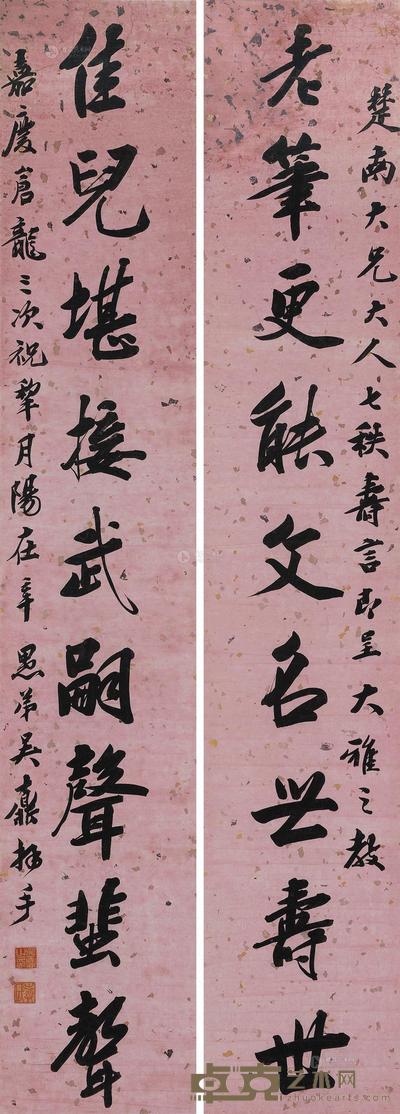 楚南大兄大人七秩壽言即呈大雅之教
老筆更能文名世壽世
佳兒堪接武嗣聲蜚聲
嘉慶倉龍三次祝犂月陽在辛愚弟吳鼒拜手
卓克艺术网
zhuokearts.com